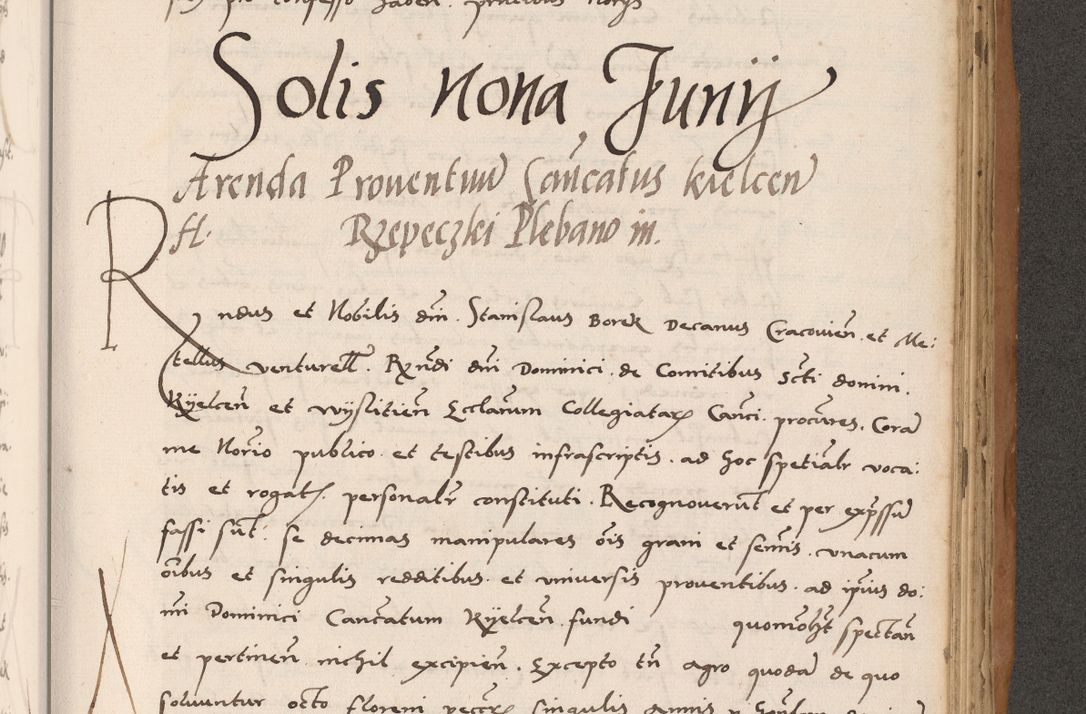 Solis nona Junij
Arenda Proventuu Cantcatus kielcen
fl. Rzepeczki Plebano in
Rndus et Nobilis dni. Stanislaus Borek Decanus Cracovien. et Me:
tellus venturell. Rndi dni Dominici de Comitibus Scti domini.
Kyelcen et vyslitien Ecclarum Collegiatar Canci procures. Cora
me Norio publico et testibus infrascriptis ad hoc spetialr voca:
tis et rogat. personalr constituti. Recognoverut et per expssu
fassi sut. se decimas manipulares ois grani et semis. unacum
oibus et singulis redditibus et universis proventibus ad ipius do:
mi Dominici Cantcatum Kyelcen. fundi quomolt spectan
et pertinen nichil excipien. Excepto tn agro quoda de quo
solvuntur octo floreni singulis annis